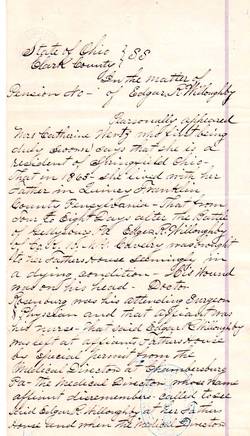 State of Ohio } SS
Clark County }
In the matter of
Pension No - of Edgar R Willoughby
Personally appeared
Mrs Catharine who first being
duly Sworn Says that she is a
resident of Springfield Ohio -
that in 1863 she lived with her
father in Quincy Franklin
County Pensylvania - that from
four to Eight Days after the Battle
of Gettysburg Pa Edgar R Willoughby
of Co. Cavalry was brought
to her fathers House Seemingly in
a dying condition - His Wound
was on his head - Doctor
was his attending Surgeon
& Physician and that affiant was
his nurse - that said Edgar R Willoughby
was left at affiants Fathers House
by Special permit from the
Medical Director at Chambersburg
Pa - the Medical Director, whose Name
affiant disremembers - called to see
said Edgar R Willoughby at her Father
House and when the Medical Director